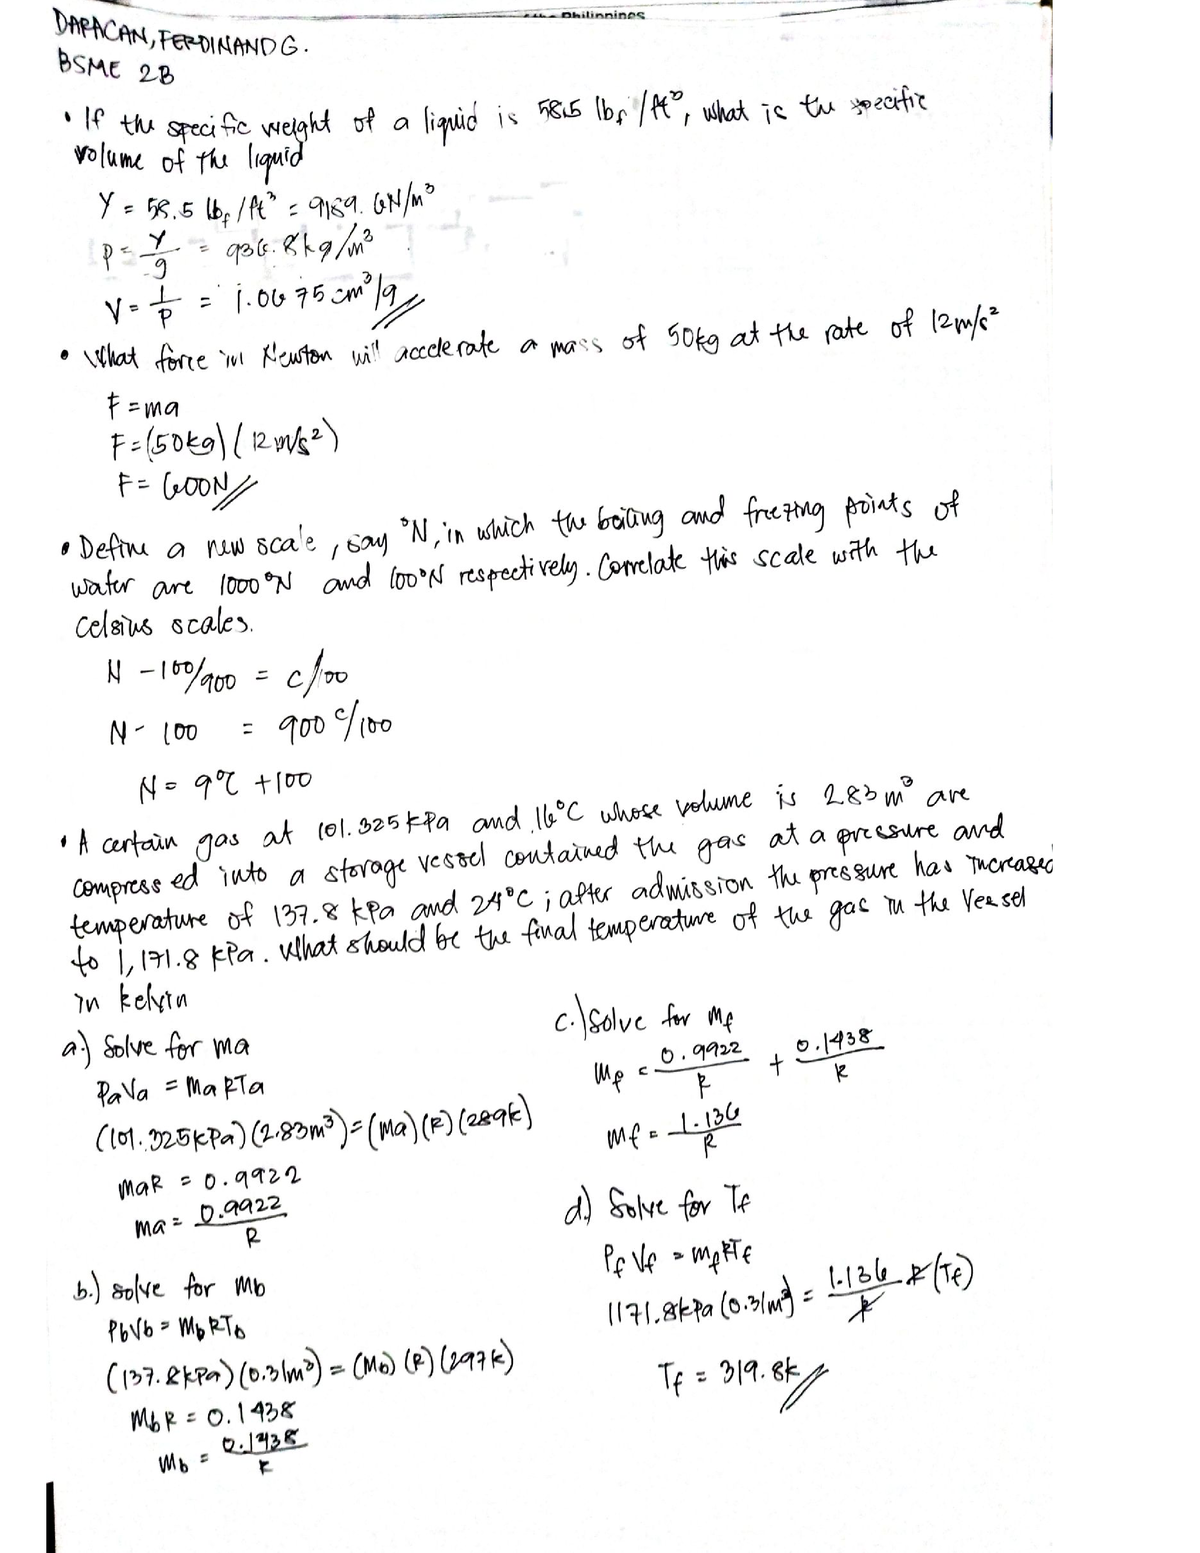 Philippines
DARACAN, FERDINAND G.
BSME 2B
• If the specific weight of a liquid is 58.5 lbf/ft³, what is the specific
volume of the liquid
γ = 58.5 lbf/ft³ = 9189.6N/m³
ρ = γ/g = 936.8kg/m³
V = 1/ρ = 1.0675 cm³/g
• What force in Newton will accelerate a mass of 50kg at the rate of 12m/s²
F = ma
F = (50kg)(12m/s²)
F = 600N
• Define a new scale, say °N, in which the boiling and freezing points of
water are 1000°N and 100°N respectively. Correlate this scale with the
Celsius scales.
N - 100/900 = C/100
N - 100 = 900 C/100
N = 9°C + 100
• A certain gas at 101.325 kPa and 16°C whose volume is 2.83 m³ are
compressed into a storage vessel contained the gas at a pressure and
temperature of 137.8 kPa and 24°C ; after admission the pressure has increased
to 1,171.8 kPa. What should be the final temperature of the gas in the Vessel
in kelvin
a.) Solve for ma
PaVa = MaRTa
(101.325kPa)(2.83m³) = (Ma)(R)(289k)
maR = 0.9922
ma = 0.9922/R
b.) solve for Mb
PbVb = MbRTb
(137.8kPa)(0.31m³) = (Mb)(R)(297k)
MbR = 0.1438
Mb = 0.1438/R
c.) Solve for Mf
Mf = 0.9922/R + 0.1438/R
Mf = 1.136/R
d.) Solve for Tf
PfVf = MfRTf
1171.8kPa(0.31m³) = 1.136/R R(Tf)
Tf = 319.8k